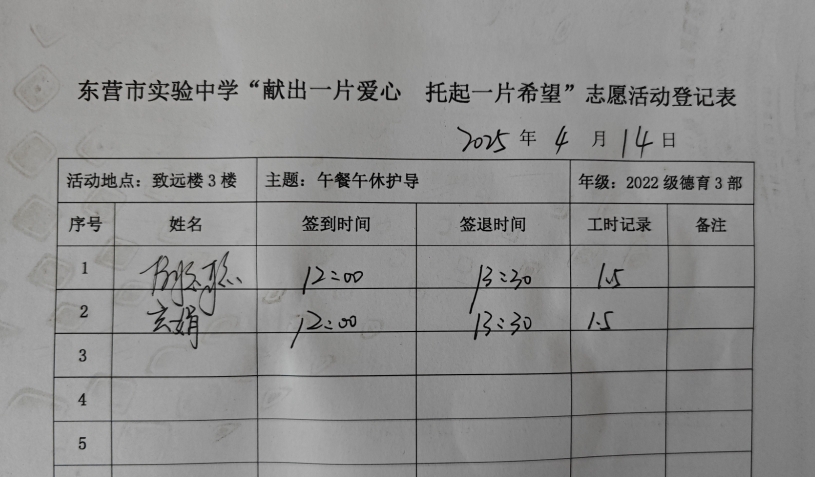 东营市实验中学“献出一片爱心 托起一片希望”志愿活动登记表
2025 年 4 月 14 日
活动地点：致远楼 3 楼 主题：午餐午休护导 年级：2022 级德育 3 部
序号 姓名 签到时间 签退时间 工时记录 备注
1 12:00 13:30 1.5
2 玄娟 12:00 13:30 1.5
3
4
5